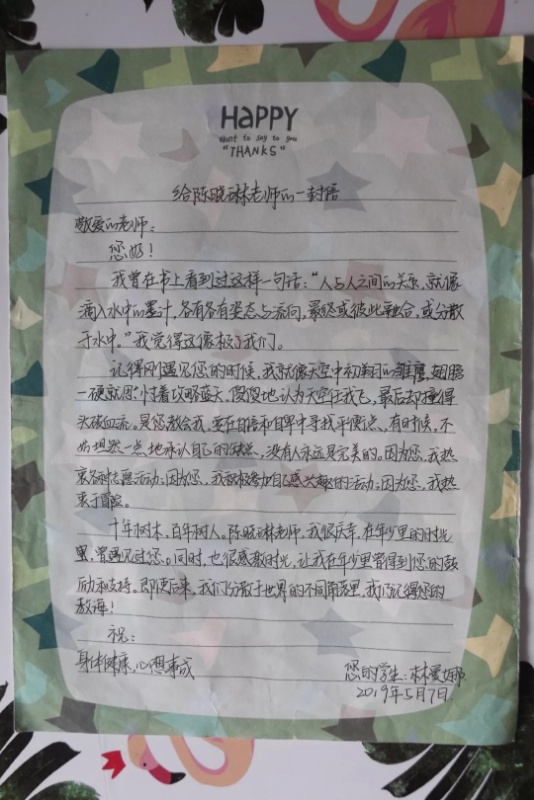 HAPPY
want to say to you
"THANKS"
给陈晓琳老师的一封信
敬爱的老师:
您好!
我曾在书上看到过这样一句话:"人与人之间的关系,就像
滴入水中的墨汁,各有各有姿态与流向,最终或彼此融合,或分散
于水中。"我觉得这像极了我们。
记得刚遇见您的时候,我就像天空中初翔的雏鹰,翅膀
一硬就思忖着攻略蓝天,傻傻地认为天空任我飞,最后却撞得
头破血流。是您教会我,要在自信和自卑中寻找平衡点,有时候,不
妨坦然一点地承认自己的缺点,没有人永远是完美的。因为您,我热
衷各种志愿活动;因为您,我积极参加自己感兴趣的活动;因为您,我热
衷于冒险。
十年树木,百年树人。陈晓琳老师,我很庆幸,在年少里的时光
里,曾遇见过您。同时,也很感激时光,让我在年少里曾得到您的鼓
励和支持。即使后来,我们分散于世界的不同角落里,我仍记得您的
教诲!
祝:
身体健康,心想事成
您的学生:林爱娜
2019年5月7日